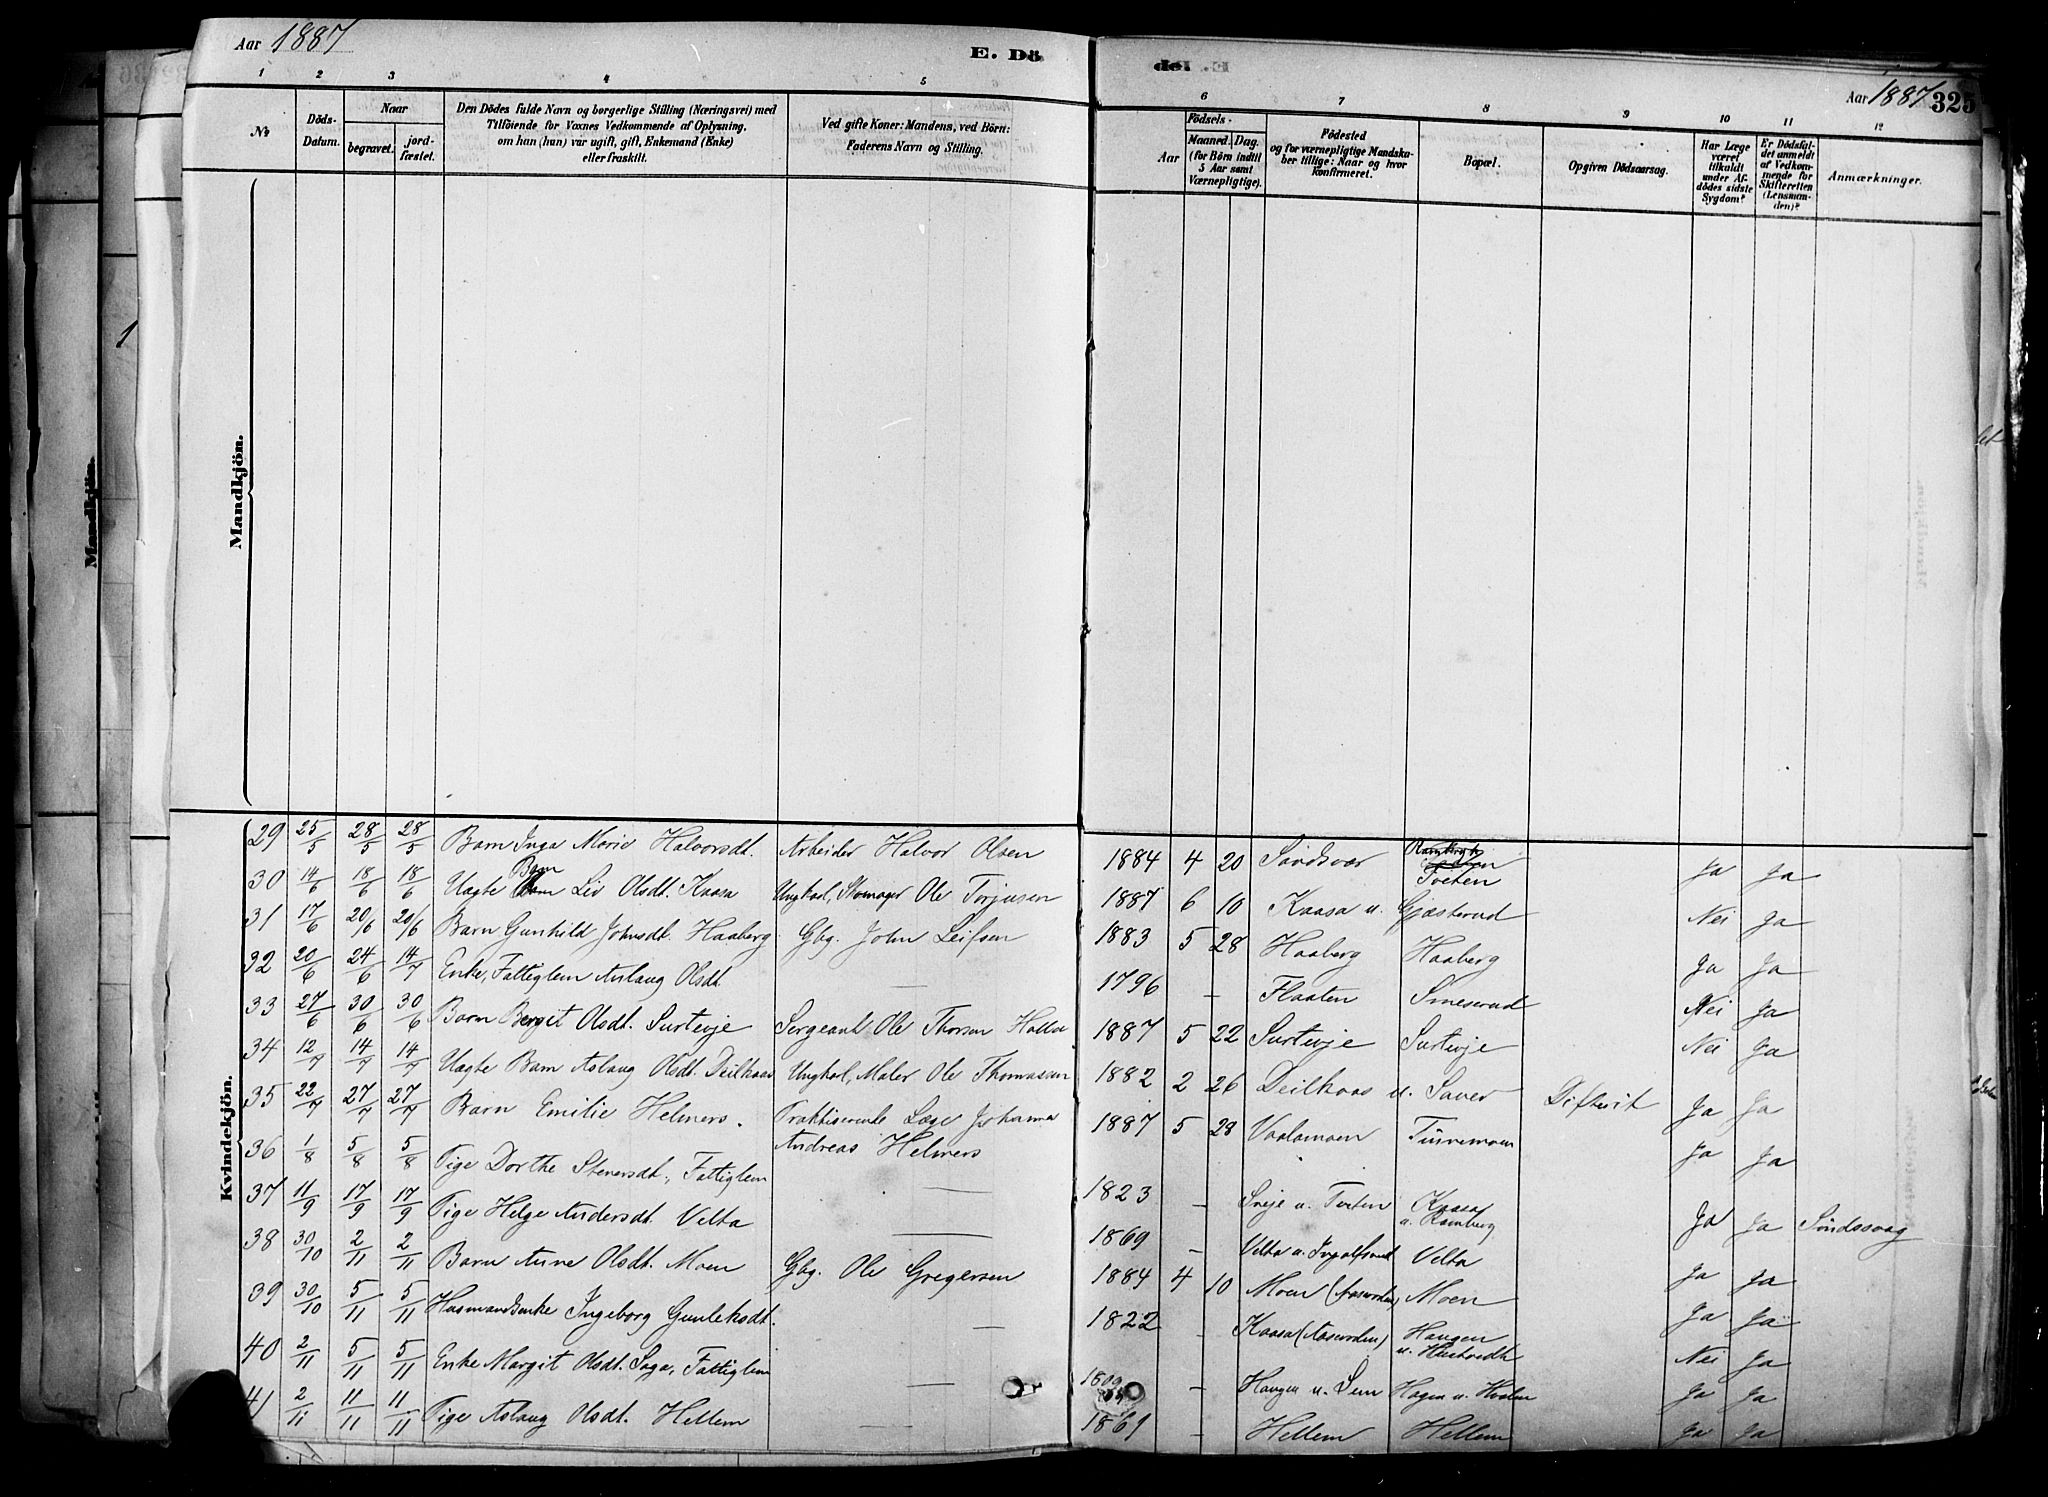 Aar 1887
E. Dö
del
Aar 1887 325
1 2 3 4 5 6 7 8 9 10 11 12
№ Döds-Datum. Naar begravet. jord-fæstet. Den Dödes fulde Navn og borgerlige Stilling (Næringsvei) med Tilföiende for Voxnes Vedkommende af Oplysning, om han (hun) var ugift, gift, Enkemand (Enke) eller fraskilt. Ved gifte Koner: Mandens, ved Börn: Faderens Navn og Stilling. Födsels- Aar Maaned. Dag. (for Börn indtil 5 Aar samt Værnepligtige). Födested og for værnepligtige Mandskaber tillige: Naar og hvor konfirmeret. Bopæl. Opgiven Dödsaarsag. Har Læge været tilkaldt under Afdödes sidste Sygdom? Er Dödsfaldet anmeldt af Vedkommende for Skifteretten (Lensmanden)? Anmærkninger.
Mandkjön.
Kvindekjön.
29 25/5 28/5 28/5 Barn Inga Marie Halvorsdt. Arbeider Halvor Olsen 1884 4 20 Sandsvær Tveten Ja Ja
30 14/6 18/6 18/6 Uægte Barn Liv Olsdt. Kaasa Ungkarl, Skomager Ole Torjusen 1887 6 10 Kaasa u. Gjæsterud Nei Ja
31 17/6 20/6 20/6 Barn Gunhild Johnsdt. Haaberg. Gbg. John Leifsen 1883 5 28 Haaberg Haaberg Ja Ja
32 20/6 24/6 14/7 Enke, Fattiglem Aslaug Olsdt — 1796 - Flaaten Smeserud Nei Ja
33 27/6 30/6 30/6 Barn Bergit Olsdt. Surtevje Sergeant Ole Thorsen 1887 5 22 Surtevje Surtevje Nei Ja
34 12/7 14/7 14/7 Uægte Barn Aslaug Olsdt. Deilkaas Ungkarl, Maler Ole Thomassen 1882 2 26 Deilkaas u. Saver Difterit Ja Ja
35 22/7 27/7 27/7 Barn Emilie Helmers. Praktiserende Læge Johannes Andreas Helmers 1887 5 28 Vaalamoen Ja Ja
36 1/8 5/8 5/8 Pige Dorthe Stenersdt., Fattiglem — 1823 - Sveje u. Tveten Kaasa u. Ramberg Ja Ja Sindssvag
37 11/9 17/9 17/9 Pige Helge Andersdt. Velta — 1869 - Velta u. Velta Ja Ja
38 30/10 2/11 2/11 Barn Anne Olsdt. Moen Gbg. Ole Gregersen 1884 4 10 Moen Moen Ja Ja
39 30/10 5/11 5/11 Husmandsenke Ingeborg Gunleksdt. — 1822 - Kaasa Haugen u. Hustvedt Nei Ja
40 2/11 5/11 5/11 Enke Margit Olsdt. Saga, Fattiglem — 1809 - Haugen u. Sem Hagen u. Ja Ja
41 2/11 11/11 11/11 Pige Aslaug Olsdt. Hellem — 1869 - Hellem Hellem Ja Ja